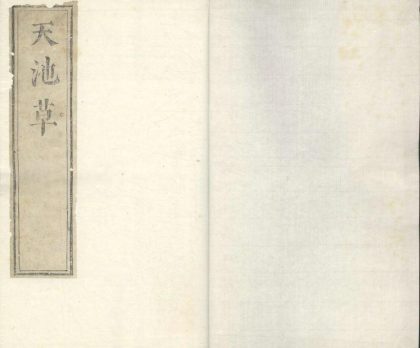 天池草